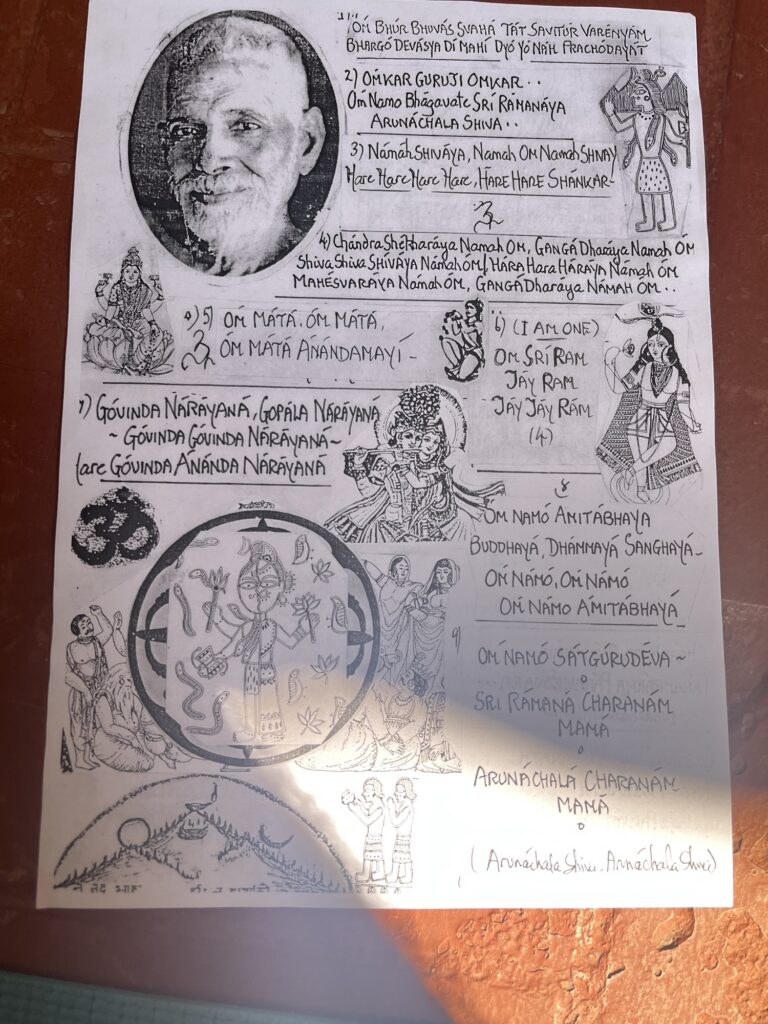 1) OḾ BHÚR BHUVÁS SVAHÁ TÁT SAVITÚR VARÉNYÁM
BHARGÓ DEVÁSYA DÍ MAHÍ DYÓ YÓ NÁH PRACHÓDAYÁT
2) OḾKAR GURUJI OMKAR . .
Oḿ Namo Bhágavate SRÍ RAMANÁYA
ARUNÁCHALA SHIVA . .
3) Námáh SHIVÁYA, Namah OM Namah SHIVAY
Hare Hare Hare Hare, HARE HARE SHÁNKAR-
4) Chándra Shékharáya Namah OM, GANGÁ Dharáya Namah ÓM
Shiva Shiva SHÍVÁYA Námah ÓM, HÁRA Hara HÁRÁYA Námah ÓM
MAHÉSVARAYA Namah OM, GANGÁ Dharáya NÁMAH OM . .
5) OḾ MÁTÁ. ÓM MÁTÁ,
OḾ MÁTÁ ÁNÁNDAMAYÍ -
6) (I AM ONE)
OM SRÍ RAM
JÁY RAM
JÁY JÁY RÁM
(4)
7) GÓVINDA NÁRÁYANÁ, GOPÁLA NÁRÁYANÁ
~ GÓVINDA GÓVINDA NÁRÁYANÁ ~
Hare GÓVINDA ÁNÁNDA NÁRÁYANÁ
ॐ
8
ÓM NAMÓ AMITÁBHAYA
BUDDHAYÁ, DHÁMMAYÁ SANGHAYÁ -
OḾ NÁMÓ, OM NÁMÓ
OḾ NÁMO ÁMITÁBHAYÁ
9)
OḾ NAMÓ SÁTGÚRUDÉVA ~
SRI RÁMANÁ CHARANÁM
MAMÁ
ARUNÁCHALÁ CHARANÁM
MAMÁ
(Arunáchala Shiva. Arunáchala Shiva)